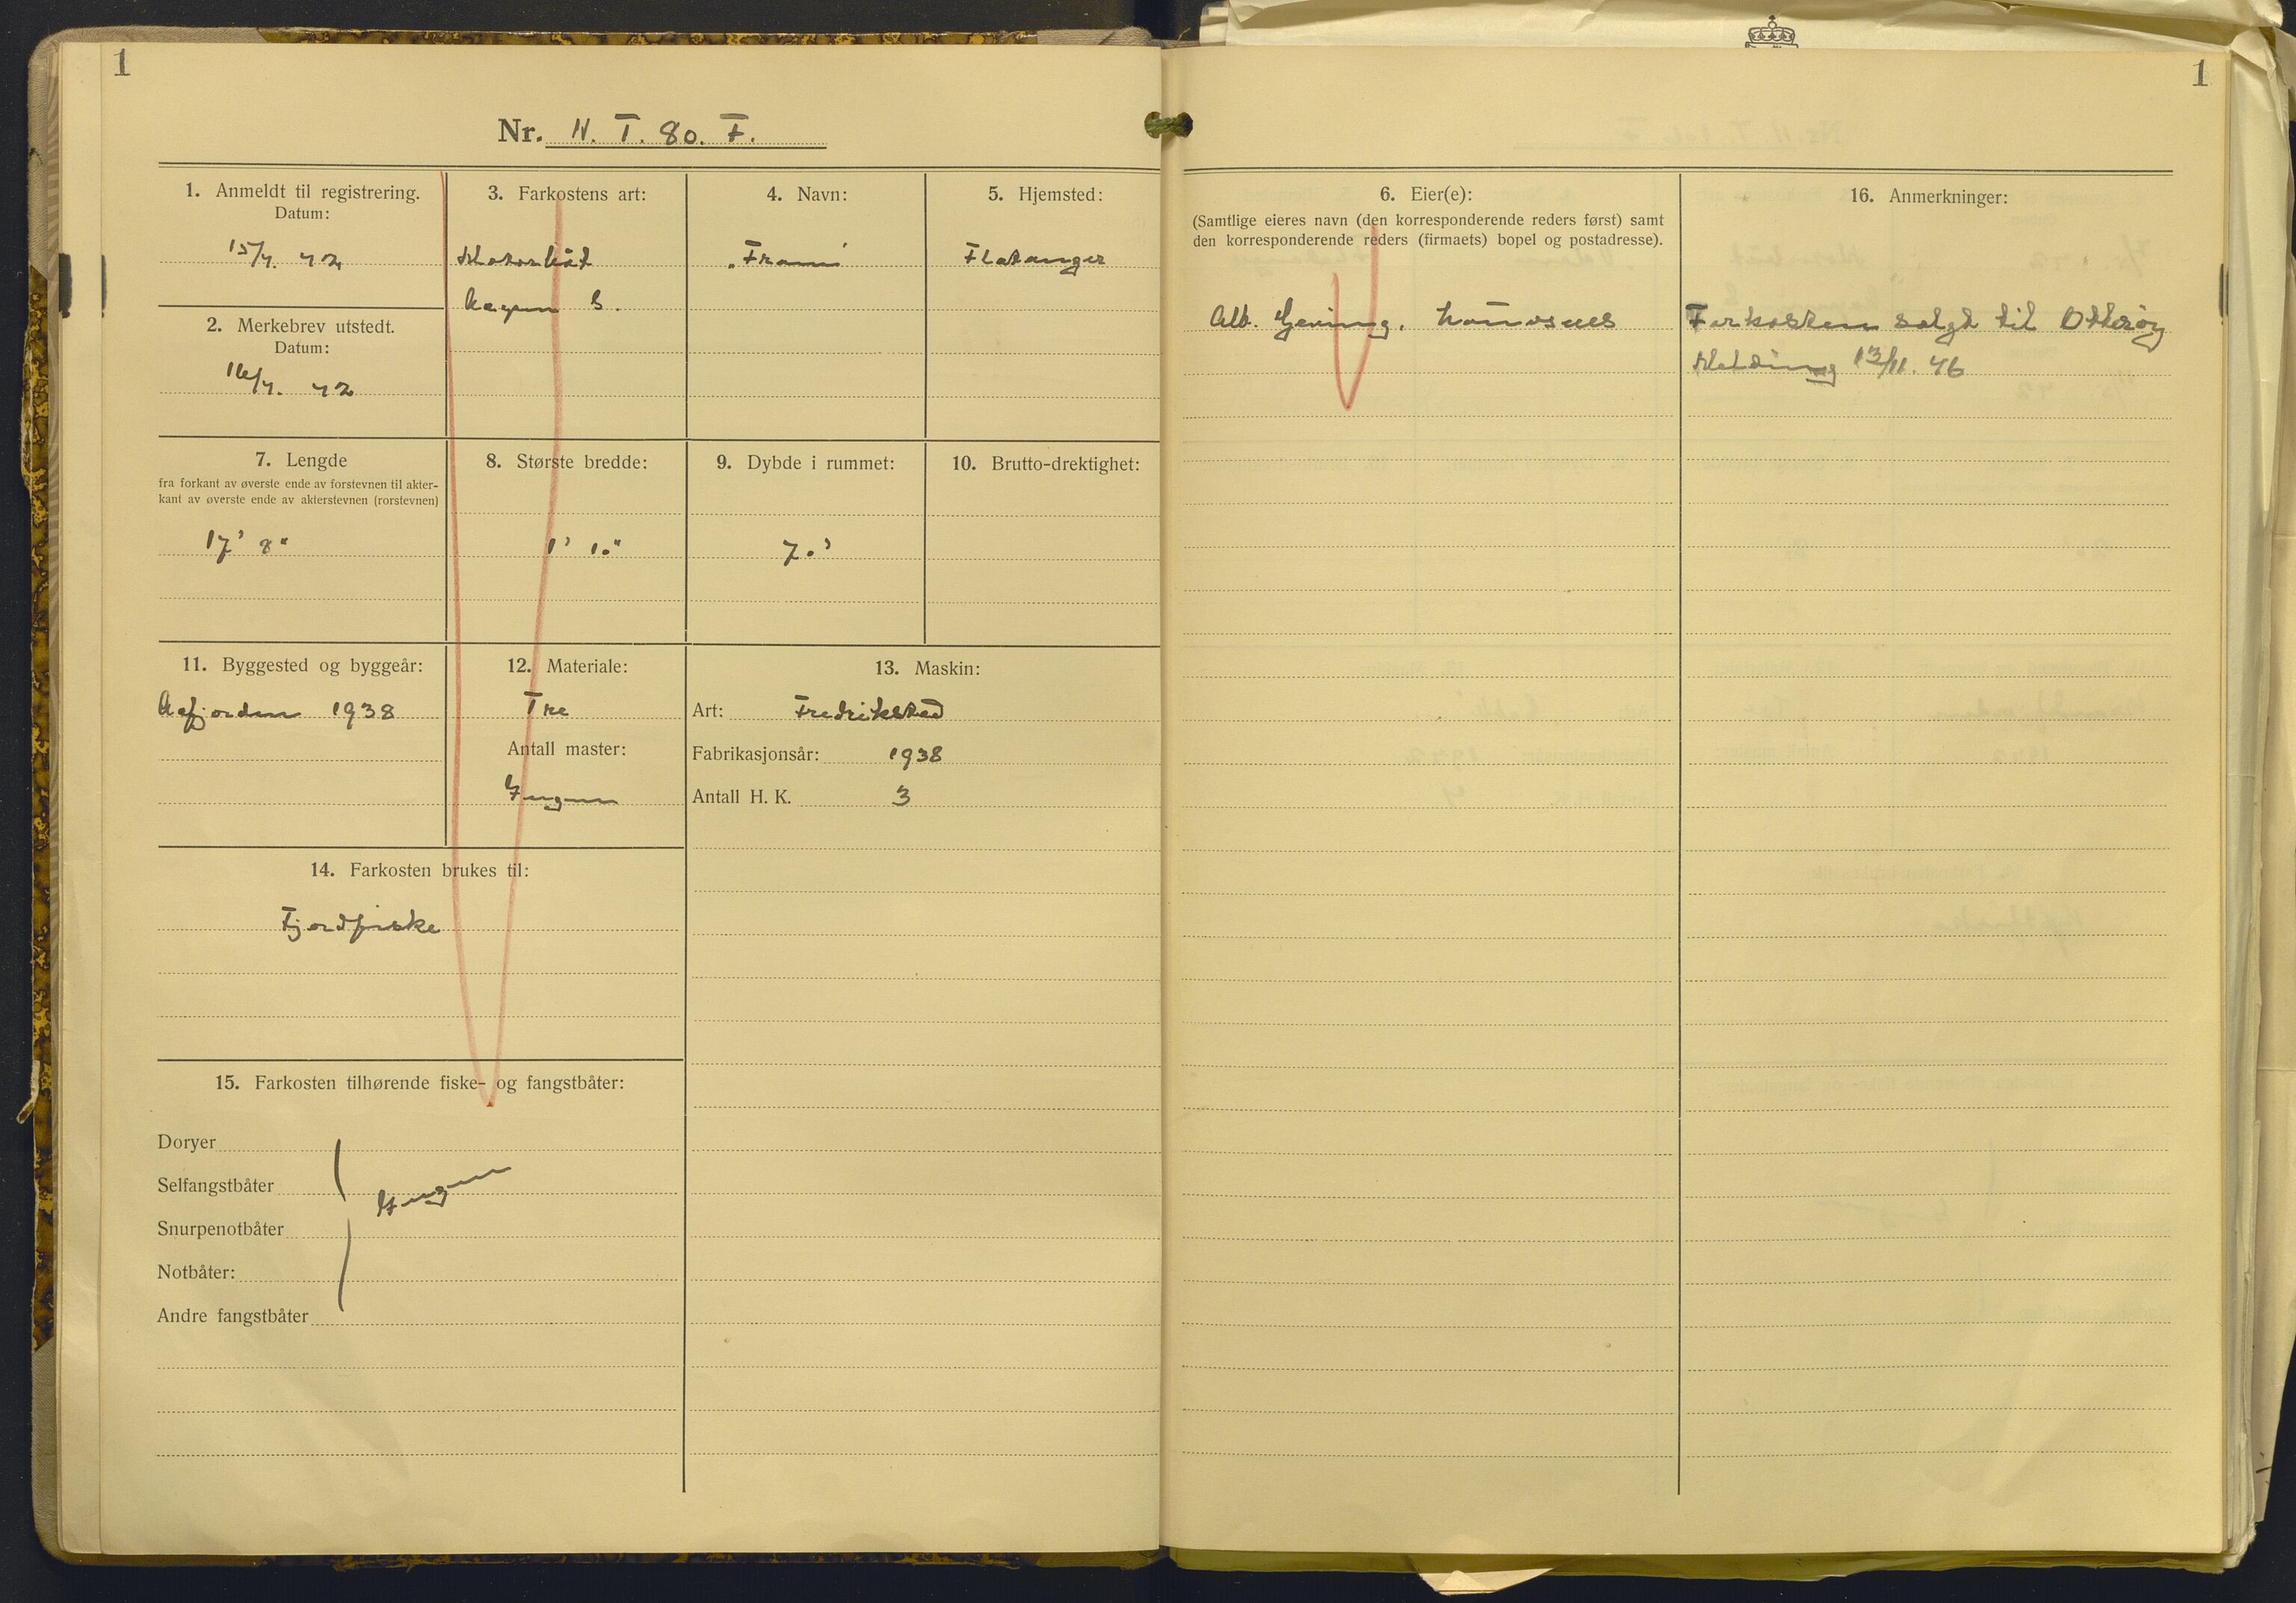 1
1
Nr. N. T. 80. F.
1. Anmeldt til registrering.
Datum:
15/4. 42
2. Merkebrev utstedt.
Datum:
16/4. 42
3. Farkostens art:
Motorbåt
Aapen S.
4. Navn:
"Fram"
5. Hjemsted:
Flatanger
7. Lengde
fra forkant av øverste ende av forstevnen til akter-
kant av øverste ende av akterstevnen (rorstevnen)
17' 8"
8. Største bredde:
1' 10"
9. Dybde i rummet:
10. Brutto-drektighet:
11. Byggested og byggeår:
Aafjorden 1938
12. Materiale:
Tre
Antall master:
Ingen
13. Maskin:
Art: Fredrikstad
Fabrikasjonsår: 1938
Antall H. K. 3
14. Farkosten brukes til:
Fjordfiske
15. Farkosten tilhørende fiske- og fangstbåter:
Doryer
Selfangstbåter
Ingen
Snurpenotbåter
Notbåter:
Andre fangstbåter
6. Eier(e):
(Samtlige eieres navn (den korresponderende reders først) samt
den korresponderende reders (firmaets) bopel og postadresse).
Alb.
16. Anmerkninger:
Farkosten solgt til Otterøy
Melding 13/11. 46